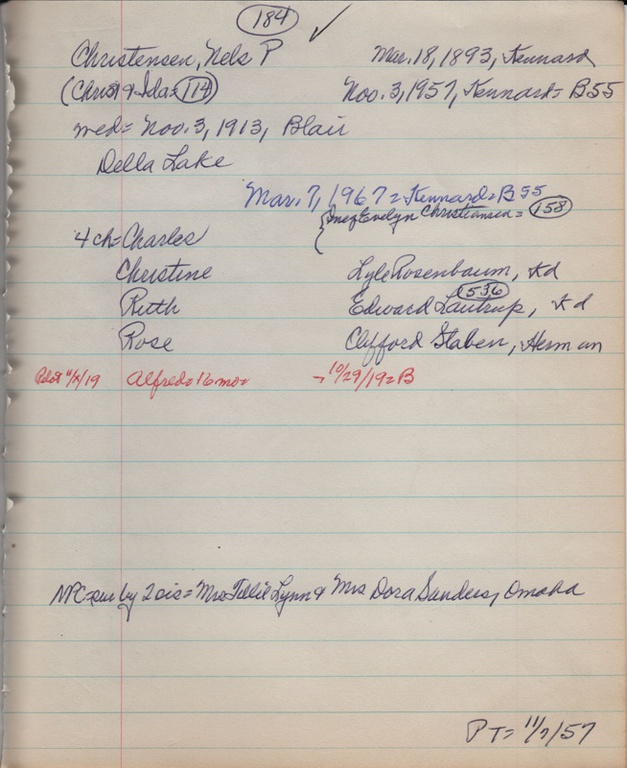 184 ✓
Christensen, Nels P Mar. 18, 1893, Kennard
(Christ & Ida= 114 Nov. 3, 1957, Kennard= B55
med= Nov. 3, 1913, Blair
Della Lake
Mar. 7, 1967= Kennard= B55
{Inez Evelyn Christiansen= 158
4 ch= Charles
Christine Lyle Rosenbaum, Kd
536
Ruth Edward Lautrup, Kd
Rose Clifford Staben, Herman
Pilot 11/5/19 Alfred= 16 mo= → 10/29/19= B
NPC= sur by 2 sis= Mrs Tillie Lynn & Mrs Dora Sanders, Omaha
PT= 11/7/57